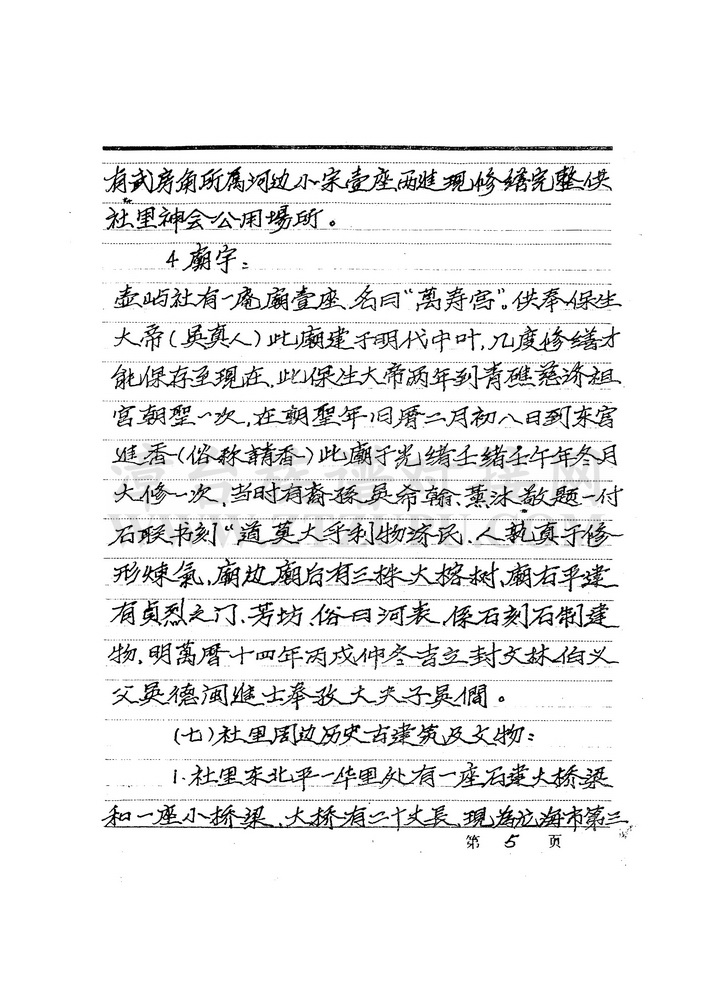 有武房角所属河边小宗壹座两進現修缮完整供
社里神会公用場所。
4 廟宇：
壶屿社有一庵廟壹座、名曰“萬寿宫”。供奉保生
大帝(吳真人)此廟建于明代中叶，几度修缮才
能保存至現在，此保生大帝两年到青礁慈济祖
宫朝聖一次，在朝聖年旧曆二月初八日到东宫
進香(俗称請香)此廟于光緒壬緒壬午年冬月
大修一次，当时有裔孫吳希翰、薰沐敬题一付
石联书刻“道莫大乎利物济民、人孰真于修
形煉氣，廟边廟后有三株大榕树，廟右平建
有貞烈之门、芳坊、俗曰河表，係石刻石制建
物，明萬曆十四年丙戌仲冬吉立封文林伯义
父吳德闽進士奉政大夫子吳僴。
(七)社里周边历史古建筑及文物：
1.社里东北平一华里处有一座石建大桥梁
和一座小桥梁、大桥有二十丈長、現為龙海市第三
第 5 页
漳台族谱对接网